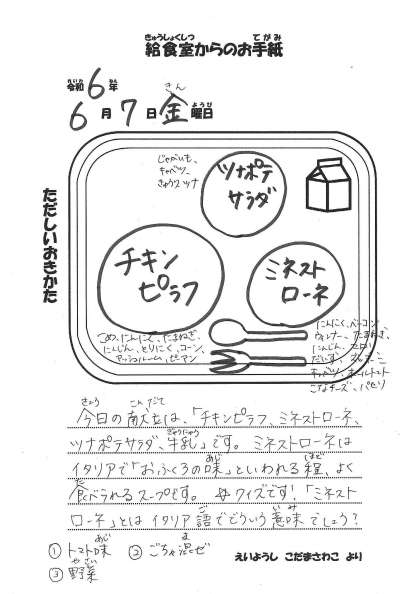 きゅうしょくしつ てがみ
給食室からのお手紙
れいわ ねん
令和6年
きん ようび
6月7日金曜日
ただしいおきかた
じゃがいも、
キャベツ、
きゅうり、ツナ
ツナポテ
サラダ
チキン
ピラフ
ミネスト
ローネ
こめ、にんにく、たまねぎ、
にんじん、とりにく、コーン、
マッシュルーム、ピーマン
にんにく、ベーコン
ウィンナー、たまねぎ、
にんじん、セロリ
だいず、
キャベツ、ホールトマト
こなチーズ、パセリ
きょう こんだて
今日の献立は、「チキンピラフ、ミネストローネ、
ぎゅうにゅう
ツナポテサラダ、牛乳」です。ミネストローネは
あじ ほど
イタリアで「おふくろの味」といわれる程、よく
た
食べられるスープです。クイズです!「ミネスト
ご いみ
ローネ」とはイタリア語でどういう意味でしょう?
あじ ま
①トマト味 ②ごちゃ混ぜ
やさい
③野菜
えいようし こだまさわこ より